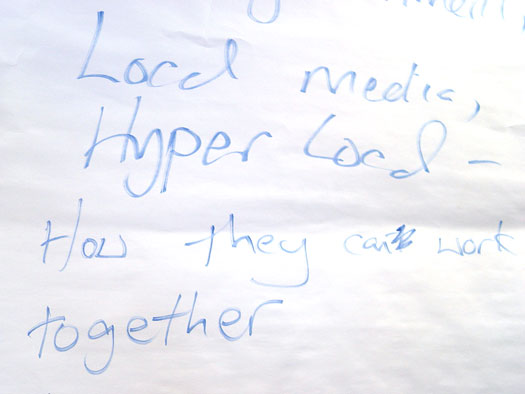 Local media,
Hyper Local -
How they can work
together